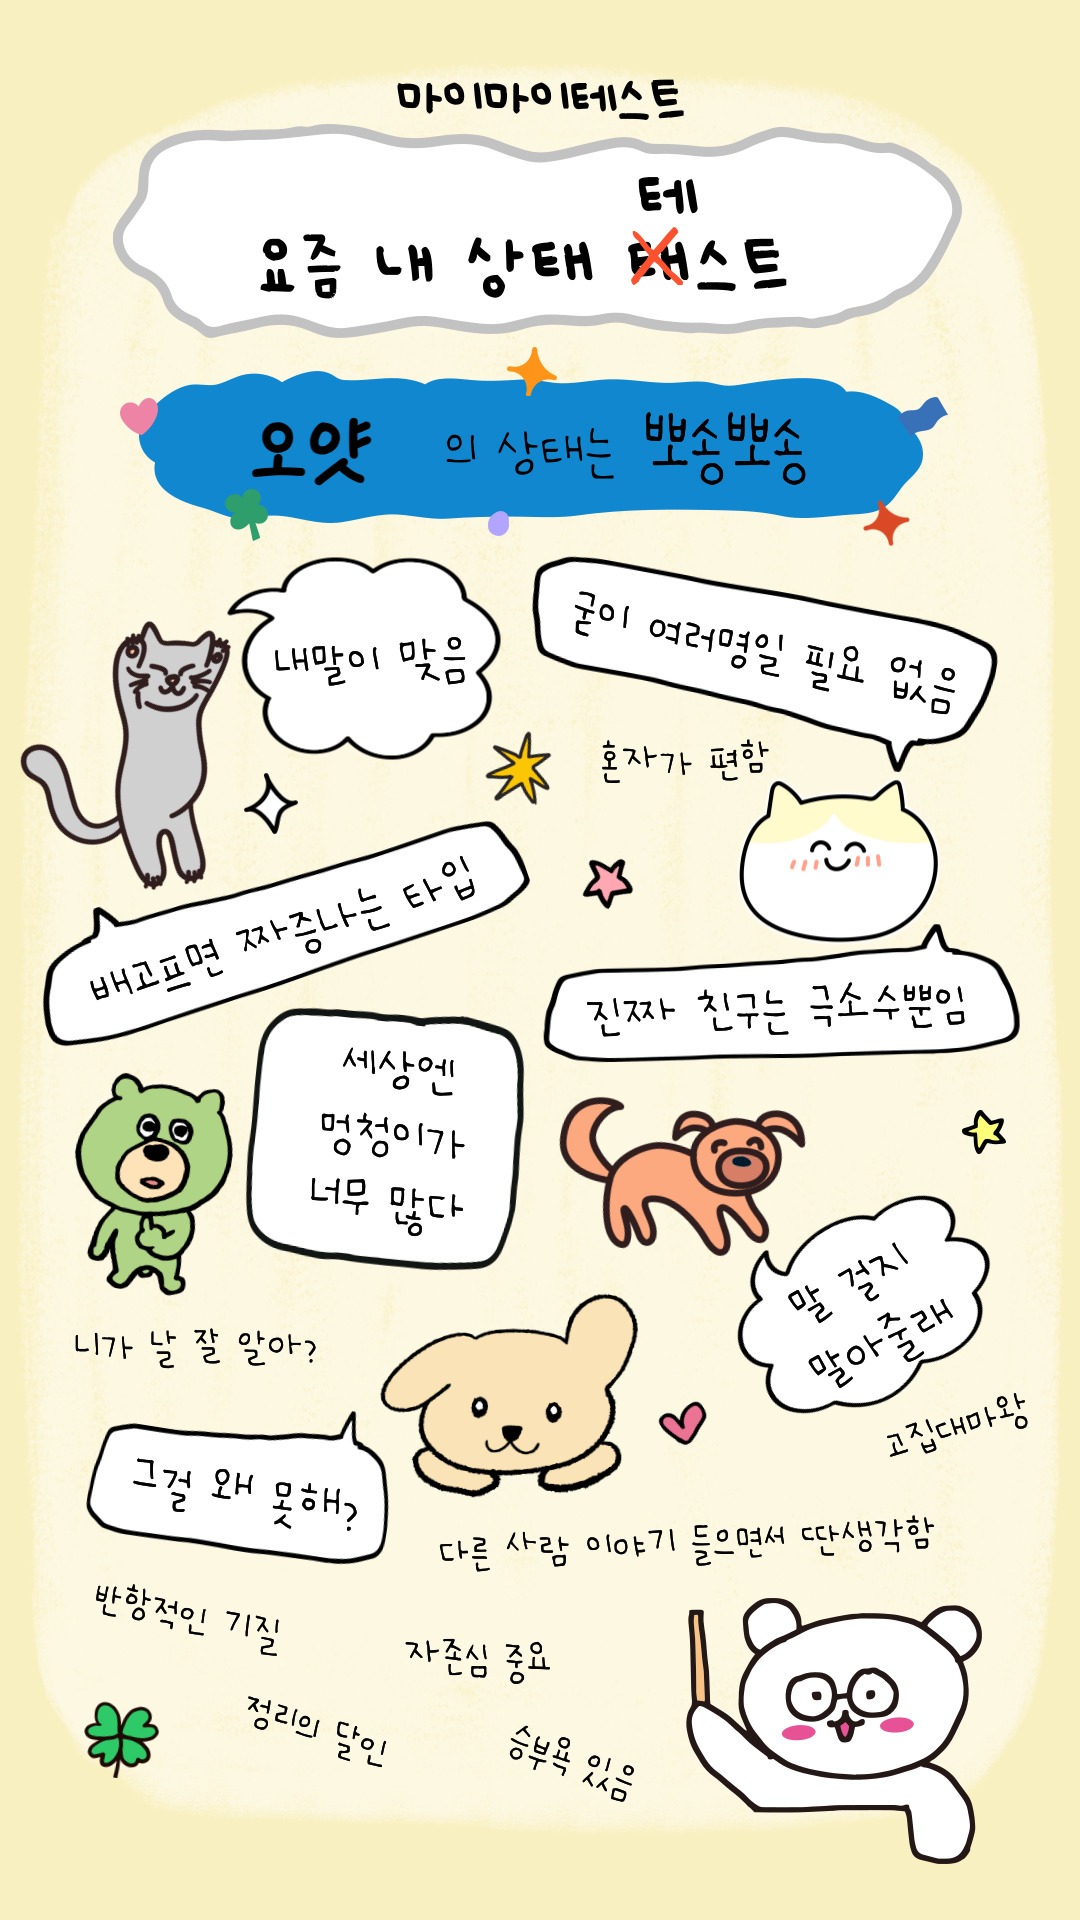 마이마이테스트
테
요즘 내 상태 태스트
오얏 의 상태는 뽀송뽀송
내말이 맞음
굳이 여러명일 필요 없음
혼자가 편함
배고프면 짜증나는 타입
진짜 친구는 극소수뿐임
세상엔
멍청이가
너무 많다
말 걸지
말아줄래
니가 날 잘 알아?
고집대마왕
그걸 왜 못해?
다른 사람 이야기 들으면서 딴생각함
반항적인 기질
자존심 중요
정리의 달인
승부욕 있음